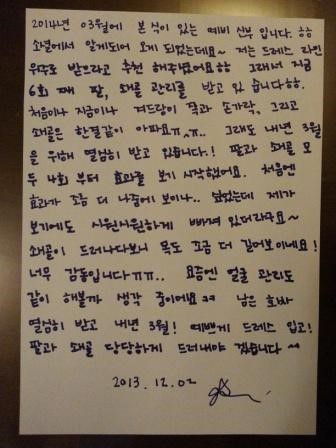 2014년 03월에 본식이 있는 예비 신부 입니다. ㅎㅎ
소개에서 알게되어 오게 되었는데요~ 저는 드레스 라인
위주로 받으라고 추천 해주셨어요ㅎㅎ 그래서 지금
6회 째 팔, 쇄골 관리를 받고 있습니다ㅎㅎ.
처음이나 지금이나 겨드랑이 쪽과 손가락, 그리고
쇄골은 한결같이 아파요ㅠ.ㅠ.. 그래도 내년 3월
을 위해 열심히 받고 있습니다.! 팔과 쇄골 모
두 4회 부터 효과를 보기 시작했어요. 처음엔
효과가 조금 더 나중에 보이나.. 싶었는데 제가
보기에도 시원시원하게 빠져 있더라구요~
쇄골이 드러나다보니 목도 조금 더 길어보이네요!
너무 감동입니다ㅠㅠ.. 요즘엔 얼굴 관리도
같이 해볼까 생각 중이에요 ㅋㅋ 남은 회차
열심히 받고 내년 3월! 예쁘게 드레스 입고!
팔과 쇄골 당당하게 드러내야 겠습니다~
2013. 12. 02